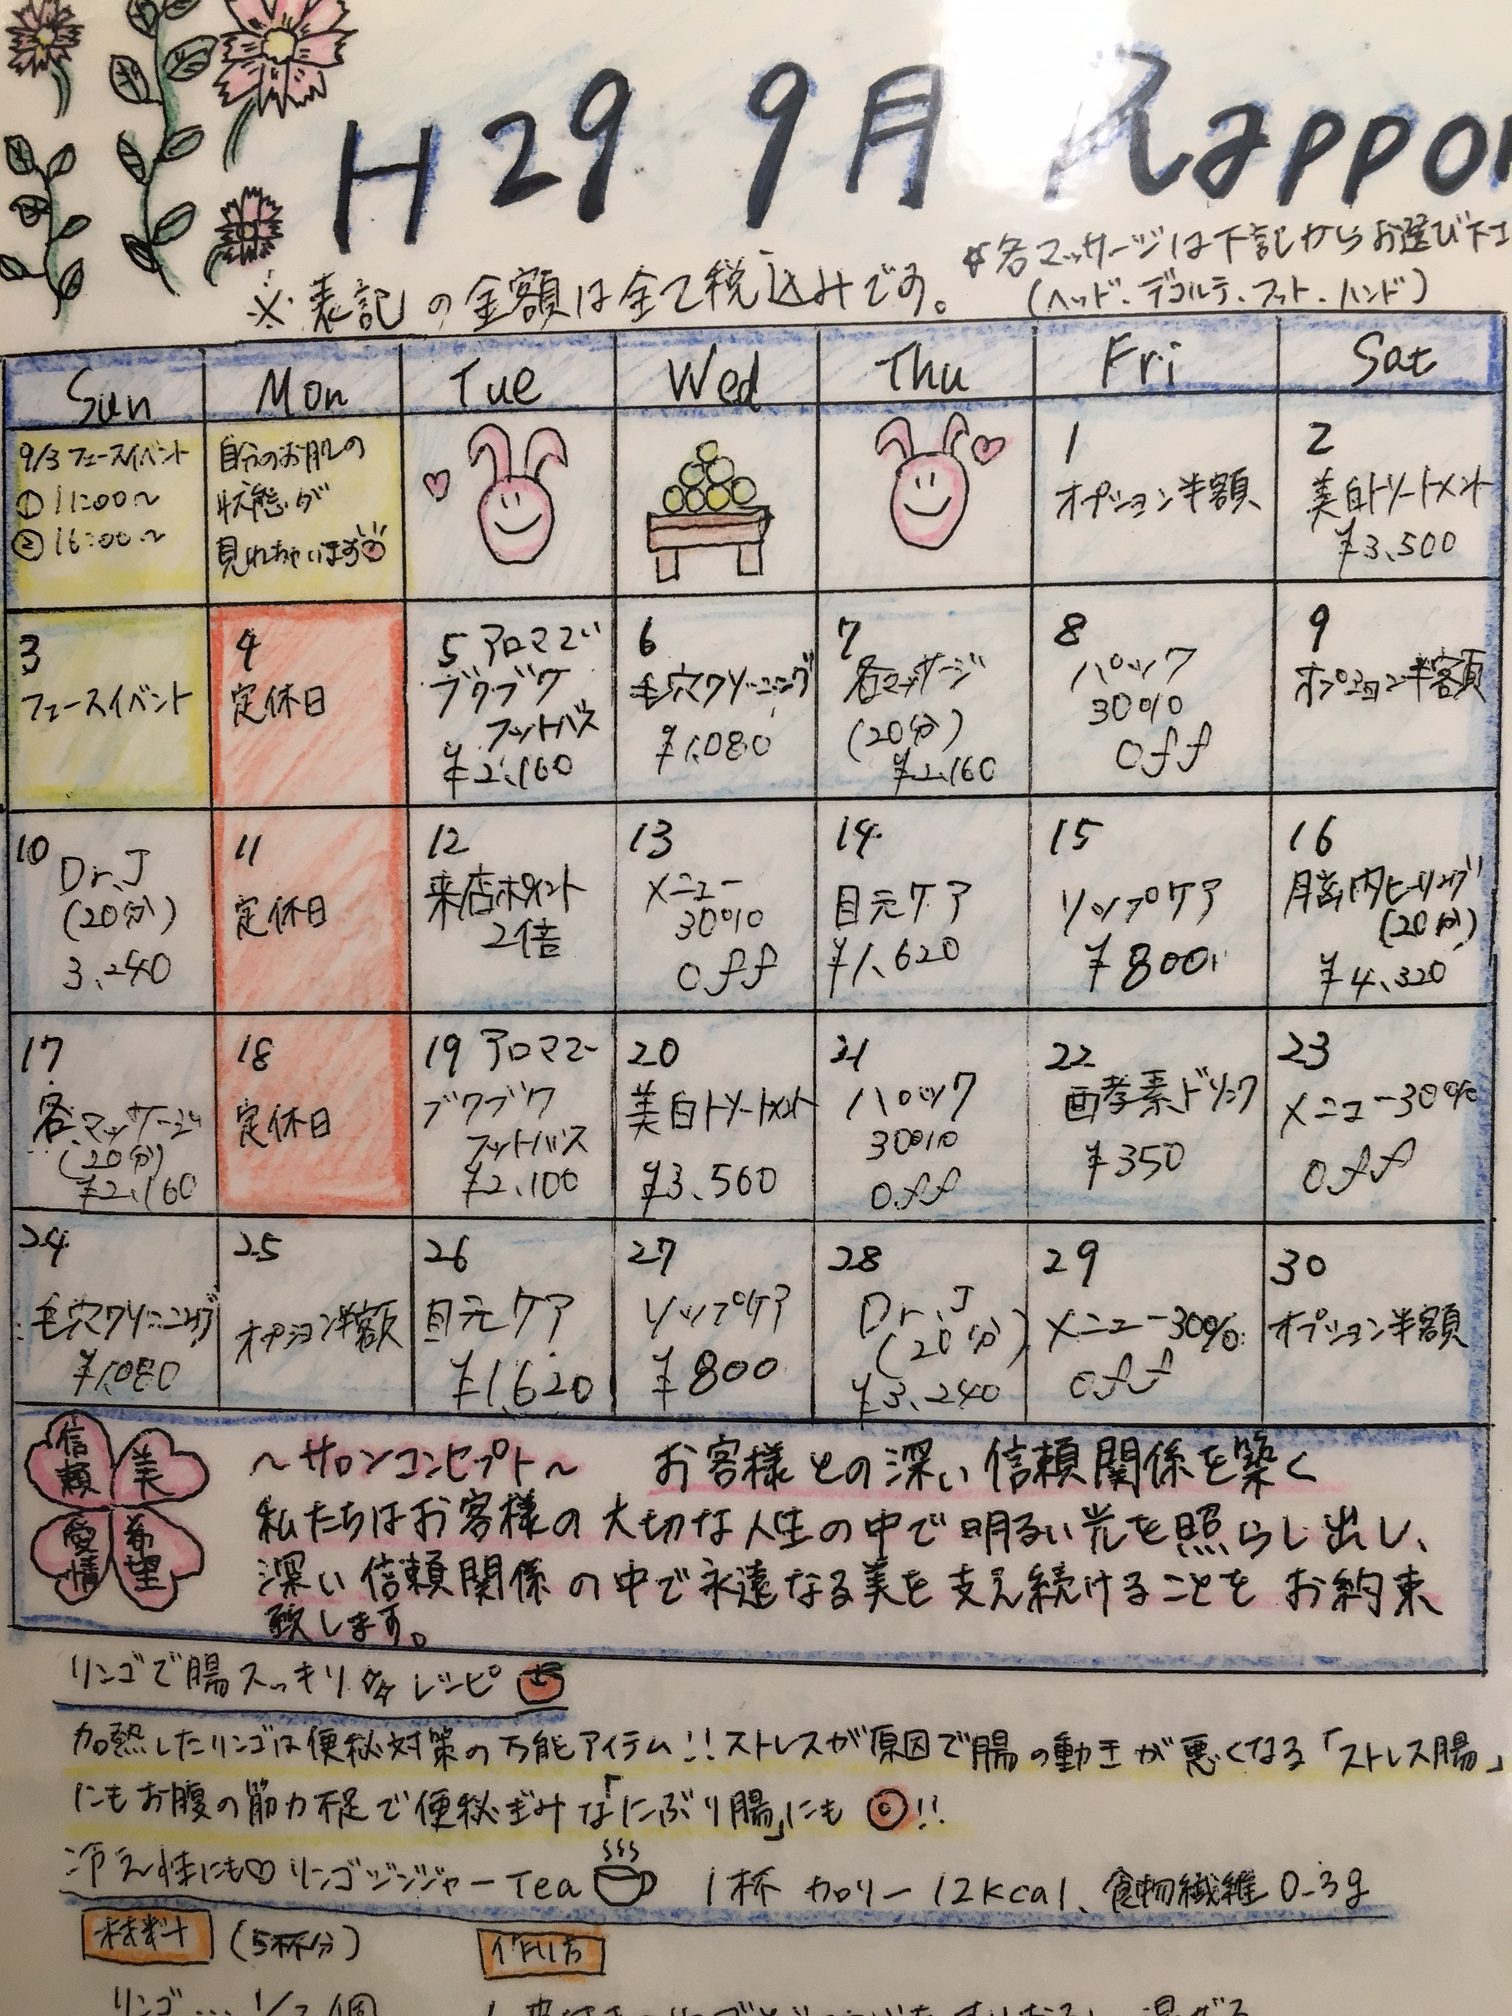 H29 9月 Rappor
※表記の金額は全て税込みです。
☆各マッサージは下記からお選び下さ
(ヘッド・デコルテ・フット・ハンド)
Sun Mon Tue Wed Thu Fri Sat
9/3 フェースイベント
① 11:00〜
② 16:00〜
自分のお肌の
状態が
見れちゃいます
1
オプション半額
2
美白トリートメント
¥3,500
3
フェースイベント
4
定休日
5 アロマで
ブクブク
フットバス
¥2,160
6
毛穴クリーニング
¥1,080
7
各マッサージ
(20分)
¥2,160
8
パック
30%
off
9
オプション半額
10
Dr.J
(20分)
3,240
11
定休日
12
来店ポイント
2倍
13
メニュー
30%
off
14
目元ケア
¥1,620
15
リップケア
¥800
16
脳内ヒーリング
(20分)
¥4,320
17
各マッサージ
(20分)
¥2,160
18
定休日
19 アロマで
ブクブク
フットバス
¥2,100
20
美白トリートメント
¥3,560
21
パック
30%
off
22
酵素ドリンク
¥350
23
メニュー30%
off
24
毛穴クリーニング
¥1,080
25
オプション半額
26
目元ケア
¥1,620
27
リップケア
¥800
28
Dr.J
(20分)
¥3,240
29
メニュー30%
off
30
オプション半額
信頼 美
愛情 希望
〜サロンコンセプト〜 お客様との深い信頼関係を築く
私たちはお客様の大切な人生の中で明るい光を照らし出し、
深い信頼関係の中で永遠なる美を支え続けることをお約束
致します。
リンゴで腸スッキリ☆レシピ
加熱したリンゴは便秘対策の万能アイテム!!ストレスが原因で腸の動きが悪くなる「ストレス腸」
にもお腹の筋力不足で便秘ぎみな「にぶり腸」にも◎!!
冷え性にも♡リンゴジンジャーTea 1杯 カロリー12kcal、食物繊維0.3g
材料 (5杯分) 作り方
リンゴ… 1/2個